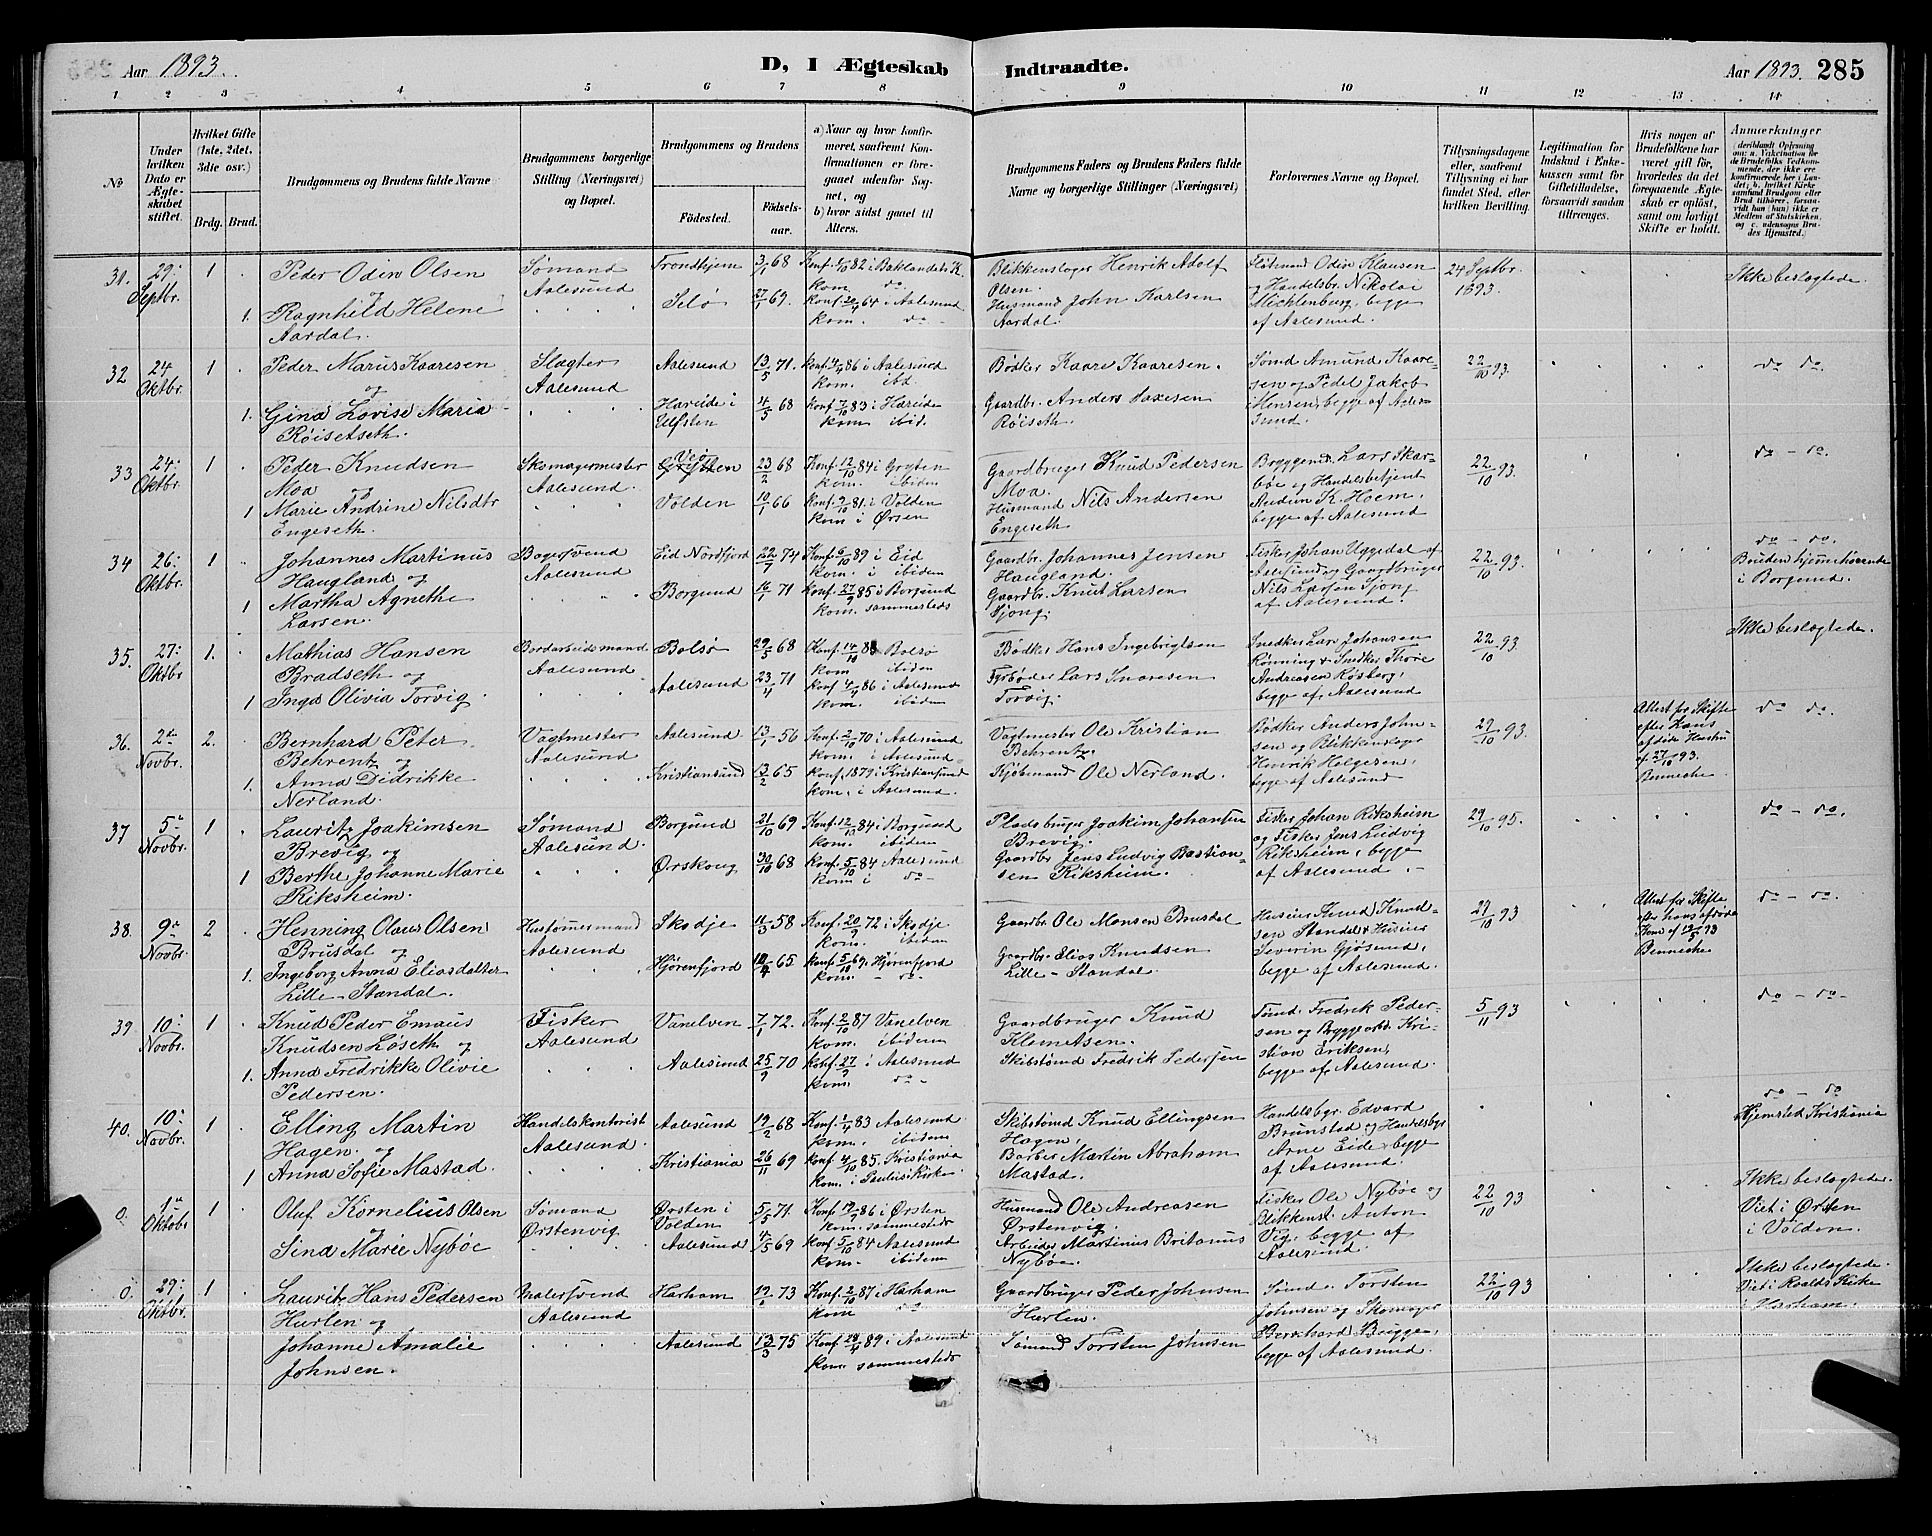 Aar 1893.
D, I Ægteskab Indtraadte.
Aar 1893. 285
1 2 3 4 5 6 7 8 9 10 11 12 13 14
No
Under hvilken Dato er Ægteskabet stiftet.
Hvilket Gifte (1ste, 2det, 3die osv.)
Brdg. Brud.
Brudgommens og Brudens fulde Navne
Brudgommens borgerlige Stilling (Næringsvei) og Bopæl.
Brudgommens og Brudens
Fødested.
Fødselsaar.
a) Naar og hvor konfirmeret, saafremt Konfirmationen er foregaaet udenfor Sognet, og
b) hvor sidst gaaet til Alters.
Brudgommens Faders og Brudens Faders fulde Navne og borgerlige Stillinger (Næringsvei)
Forlovernes Navne og Bopæl.
Tillysningsdagene eller, saafremt Tillysning ei har fundet Sted, efter hvilken Bevilling.
Legitimation for Indskud i Enkekassen samt for Giftetilladelse, forsaavidt saadan tiltrænges.
Hvis nogen af Brudefolkene har været gift før, hvorledes da det foregaaende Ægteskab er opløst, samt om lovligt Skifte er holdt.
Anmærkninger (deriblandt Oplysning om: a. Vakcination for de Brudefolks Vedkommende, der ikke ere konfirmerede her i Landet; b. hvilket Kirkesamfund Brudgom eller Brud tilhører, forsaavidt han (hun) ikke er Medlem af Statskirken, og c. udensogns Brudes Hjemsted.)
31. 29: Septbr. 1 Peder Odin Olsen og Sømand Aalesund Trondhjem 3/1 68 Konf. 1/10 82 i Baklandets K. kom. do Blikkenslager Henrik Adolf Olsen. Odin Klausen og Handelsbr. Nikolai Mecklenburg, begge af Aalesund. 24 Septbr. 1893. Ikke beslægtede.
1. Ragnhild Helene Aardal. Selø 27/1 69. Konf. i Aalesund kom. do Husmand John Karlsen Aardal.
32 24 Oktbr. 1 Peder Marius Kaaresen og Slagter Aalesund Aalesund 13/5 71. Konf. 86 i Aalesund kom. ibd. Bødker Kaare Kaaresen. Sømd Amund Kaaresen og Pedel Jakob Hensen, begge af Aalesund. 22/10 93. do do.
1. Gina Lovise Maria Røisetseth. Hareide i Ulfsten 4/5 68 Konf. 7/10 83 i Hareide kom ibid. Gaardbr. Anders Røiseth.
33 24: Oktbr. 1 Peder Knudsen Moa og Skomagermester Aalesund. 23/2 68 Konf. 12/10 84 i Gryten kom. ibiden Gaardbruger Knud Pedersen Moa. Lars Skarbøe og Handelsbetjent K. Hoem, begge af Aalesund 22/10 93. do - do.
1 Marie Andrine Nilsdtr Engeseth. Volden 10/1 66 Konf. 9/10 81. i Volden kom i Ørsen Husmand Nils Andersen Engeseth
34 26: Oktbr. 1 Johannes Martinus Haugland og Bagersvend Aalesund Eid Nordfjord 22/7 74 Konf. 6/10 89 i Eid kom. i ibiden Gaardbr. Johannes Jensen Haugland. Fisker Johan Uggedal af Aalesund og Gaardbruger Nils Larsen Sjong af Aalesund. 22/10 93. do - do. Bruden hjemmehørende i Borgund.
1 Martha Agnethe Larsen. Borgund 16/1 71 Konf. 27/9 85 i Borgund kom. sammesteds Gaardbr. Knut Larsen Sjong.
35. 27: Oktbr 1. Mathias Hansen Bradseth og Bordarbeidsmand Aalesund Bolsø 29/5 68 Konf. 14/10 83 Bolsø kom ibiden Bødker Hans Ingebrigtsen Snedker Lars Johansen Rønning & Snedker Thore Andreasen Røsberg, begge af Aalesund 22/10 93. Ikke beslægtede.
1 Inga Olivia Torvig. Aalesund 23/4 71 Konf. 4/9 86 i Aalesund kom. ibiden Fyrbøder Lars Torvig.
36. 2en Novbr. 2. Bernhard Peter Behrentz og Vagtmester Aalesund Aalesund 13/1 56 Konf. 2/10 70 i Aalesund kom. i Aalesund. Vagtmester Ole Kristian Behrentz. Bødker Anders Johnsen og Blikkenslager Henrik Holgersen, begge af Aalesund 29/10 93. Attest fra Skifte efter Hans afdøde Hustru af 27/10 93. Benneche do do.
1. Anna Didrikke Nerland. Kristiansund 13/2 65 Konf. 1879 i Kristiansund kom. i Aalesund. Kjøbmand Ole Nerland.
37 5 Novbr. 1 Lauritz Joakimsen Brevig og Sømand Aalesund. Borgund 21/10 69 Konf. 12/10 84 i Borgund kom. ibiden Pladsbruger Joakim Johansen Brevig. Fisker Johan Riksheim og Fisker Jens Ludvig Riksheim, begge af Aalesund. 29/10 95. do - do.
1 Berthe Johanne Marie Riksheim. Ørskoug 30/10 68 Konf. 5/10 84 Aalesund kom i do - Gaardbr Jens Ludvig Bastiansen Riksheim.
38. 9 Novbr. 2 Henning Olaus Olsen Brusdal og Hustømmermand Aalesund Skodje 11/3 58 Konf. 20/9 72 i Skodje kom. ibiden Gaardbr. Ole Monsen Brusdal Husier Knud Knudsen Standal & Husier Severin Gjøsund, begge af Aalesund. 29/10 93 Attest for Skifte efter hans afdøde Kone af 12/5 93 Benneche do - do.
1. Ingeborg Anna Eliasdatter Lille-Standal. Hjørenfjord 65 Konf. i Hjørenfjord kom. - do - Gaardbr. Elias Knudsen Lille-Standal.
39. 10: Novbr. 1 Knud Peder Emaus Knudsen Løseth og Fisker Aalesund Vanelven 7/1 72. Konf. 2/10 87 Vanelven kom. ibiden Gaardbruger Knud Klemetsen. Fredrik Pedersen og Kristian Eriksen, begge af Aalesund. 5/11 93 do - do -
1. Anna Fredrikke Olivie Pedersen. Aalesund 25/9 70 Konf. 27/9 i Aalesund kom. do - Skibstømd Fredrik Pedersen
40. 10: Novbr. 1 Elling Martin Hagen og Handelskontorist Aalesund. Aalesund 19/2 68 Konf. 83 Aalesund kom. ibiden Skibstømd Knud Ellingsen Hagen, Handelsbgr. Edvard Brunstad og Handelsbgr Arne Eide begge af Aalesund. do - do Hjemsted Kristiania
1 Anna Sofie Mastad. Kristiania 26/11 69 Konf. 4/10 85. Kristiania kom. i Paulus Kirke. Barber Martin Abraham Mastad.
0. 1 Oktobr 1 Olaf Kornelius Olsen og Sømand Ørstenvig Ørsten i Volden 5/5 71 Konf. 86 i Ørsten kom. sammesteds Husmand Ole Andreasen Ørstenvig. Fisker Ole Nybøe og Blikkensl. Anton Vig, begge af Aalesund. 22/10 93 Ikke beslægtede. Viet i Ørsten i Volden.
Sina Marie Nybøe Aalesund 4/5 69 Konf. 5/10 84 Aalesund kom. ibidem Arbeider Martinus Britanus Nybøe.
0. 29: Oktbr. 1 Lauritz Hans Pedersen Hurlen og Malersvend Aalesund Harham 73 Konf. 2/10 87 i Harham kom do Gaardbruger Peder Johnsen Hurlen. Sømd. Torsten Johnsen og Skomager Bernhard Brygge, begge af Aalesund. 22/10 93 Ikke beslægtede. Viet i Roalds Kirke i Harham.
Johanne Amalie Johnsen. Aalesund 13/3 75 Konf. 89 i Aalesund kom. sammesteds Sømand Torsten Johnsen